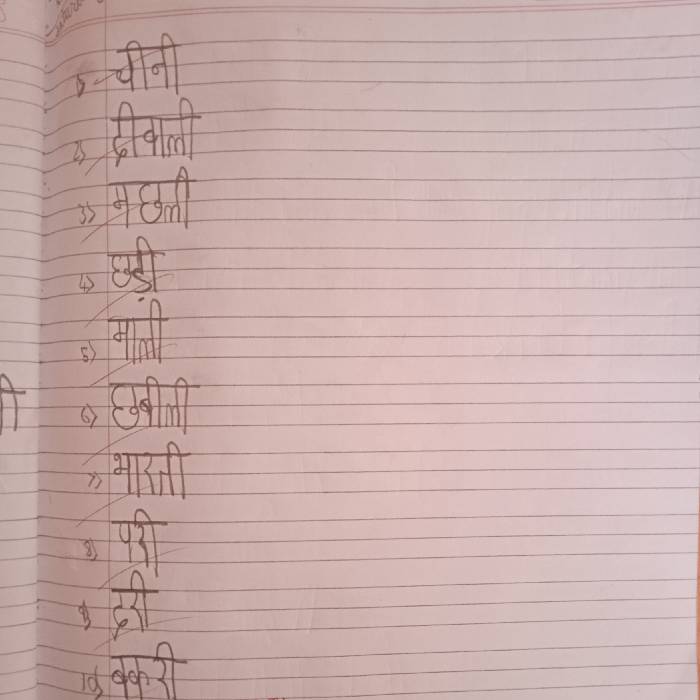 1) चीनी
2) दीवाली
3) मछली
4) छड़ी
5) माली
6) छबीली
7) भारती
8) परी
9) दरी
10) बकरी